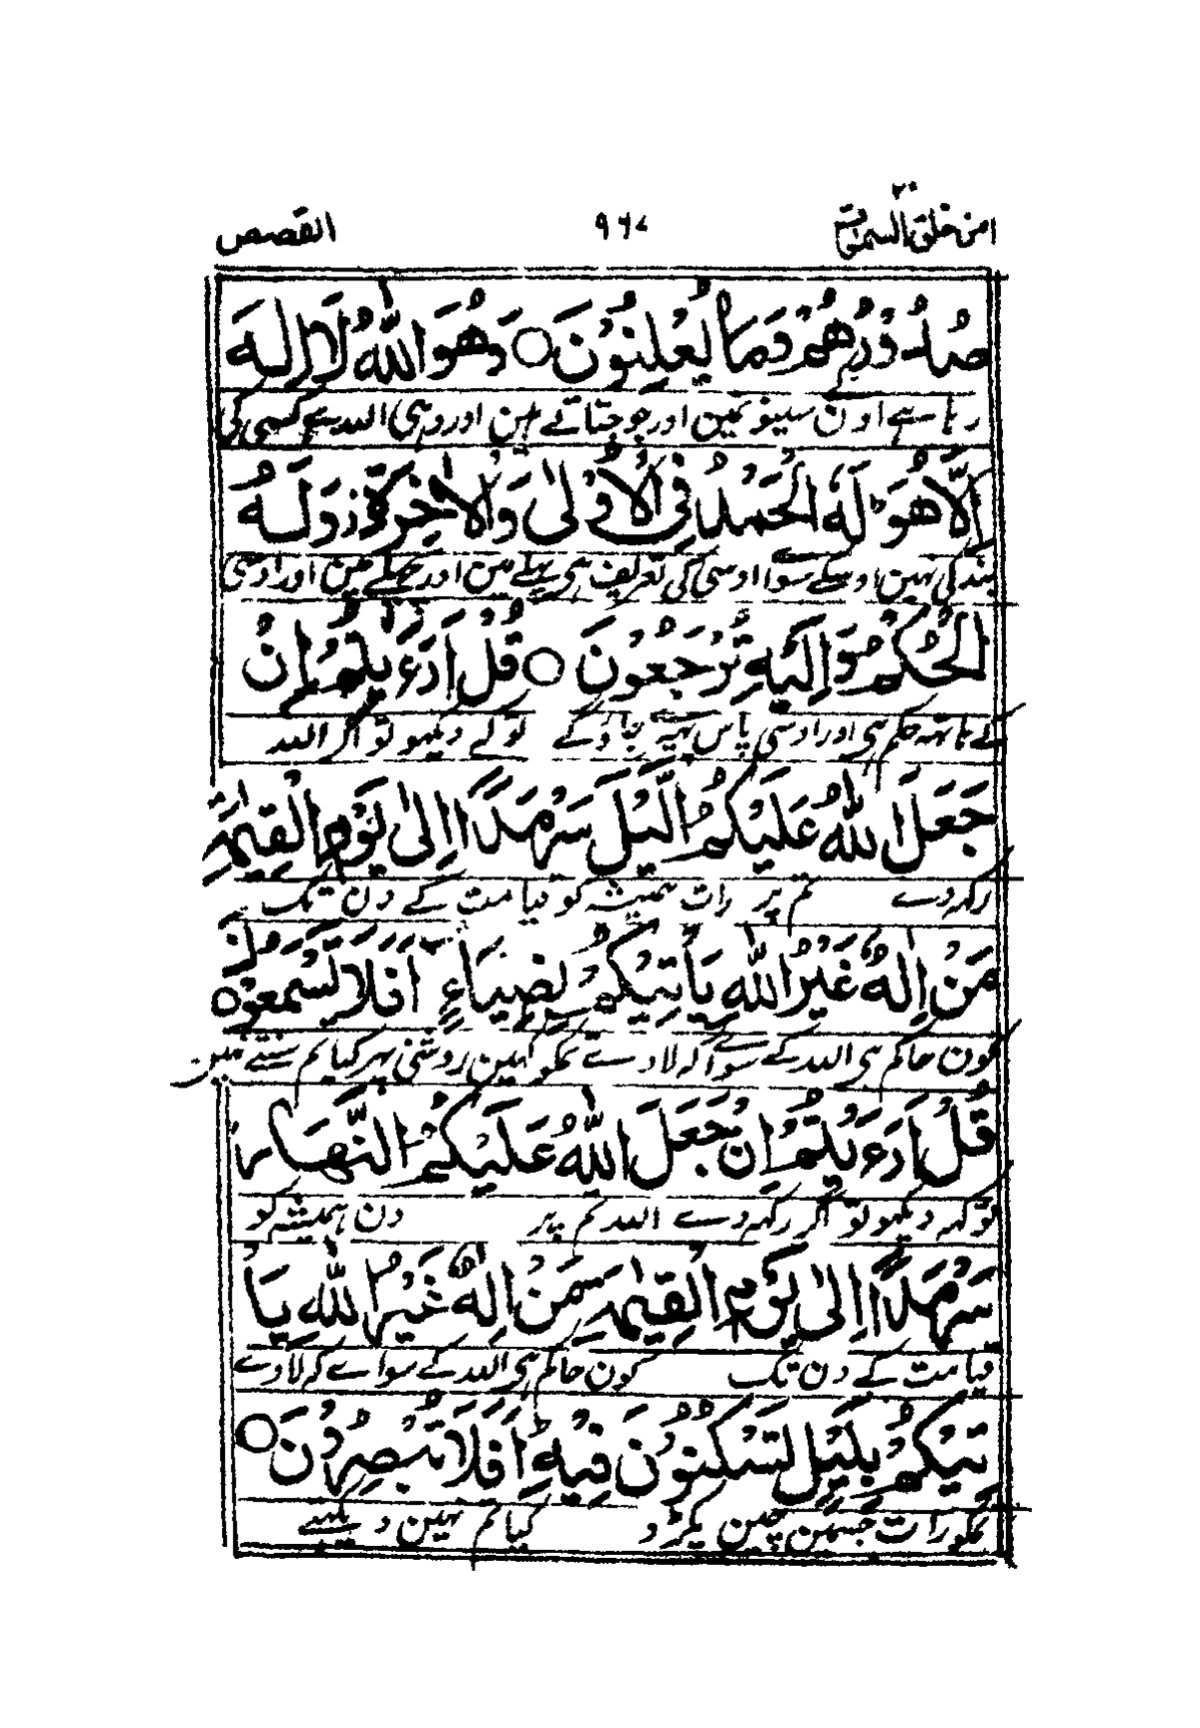 امن خلق السمٰوٰت ٢٠ ٩٦٧ القصص
صُدُوْرُهُمْ وَمَا يُعْلِنُوْنَ ○ وَهُوَ اللّٰهُ لَآ اِلٰهَ
رہا ہے اون سینونمین اور جو جتاتے ہین اور وہی اللہ ہے کسی کی
اِلَّا هُوَ ؕ لَهُ الْحَمْدُ فِى الْاُوْلٰى وَالْاٰخِرَةِ ز وَلَهُ
بندگی نہین اوسکے سوا اوسی کی تعریف ہی پہلے مین اور پچھلے مین اور اوسی
الْحُكْمُ وَاِلَيْهِ تُرْجَعُوْنَ ○ قُلْ اَرَءَيْتُمْ اِنْ
کے ہاتھ حکم ہی اور اوسی پاس پھیرے جاؤگے تو کہے دیکھو تو اگر اللہ
جَعَلَ اللّٰهُ عَلَيْكُمُ الَّيْلَ سَرْمَدًا اِلٰى يَوْمِ الْقِيٰمَةِ
رکھدے تم پر رات ہمیشہ کو قیامت کے دن تک
مَنْ اِلٰهٌ غَيْرُ اللّٰهِ يَاْتِيْكُمْ بِضِيَآءٍ اَفَلَا تَسْمَعُوْنَ ○
کون حاکم ہی اللہ کے سوا کہ لاوے تمکو کہین روشنی پھر کیا تم سنتے نہین
قُلْ اَرَءَيْتُمْ اِنْ جَعَلَ اللّٰهُ عَلَيْكُمُ النَّهَارَ
تو کہہ دیکھو تو اگر رکھدے اللہ تم پر دن ہمیشہ کو
سَرْمَدًا اِلٰى يَوْمِ الْقِيٰمَةِ مَنْ اِلٰهٌ غَيْرُ اللّٰهِ يَاْ
قیامت کے دن تک کون حاکم ہی اللہ کے سواے کہ لاوے
تِيْكُمْ بِلَيْلٍ تَسْكُنُوْنَ فِيْهِ ؕ اَفَلَا تُبْصِرُوْنَ ○
تمکو رات جسمین چین پکڑو کیا تم نہین دیکھتے